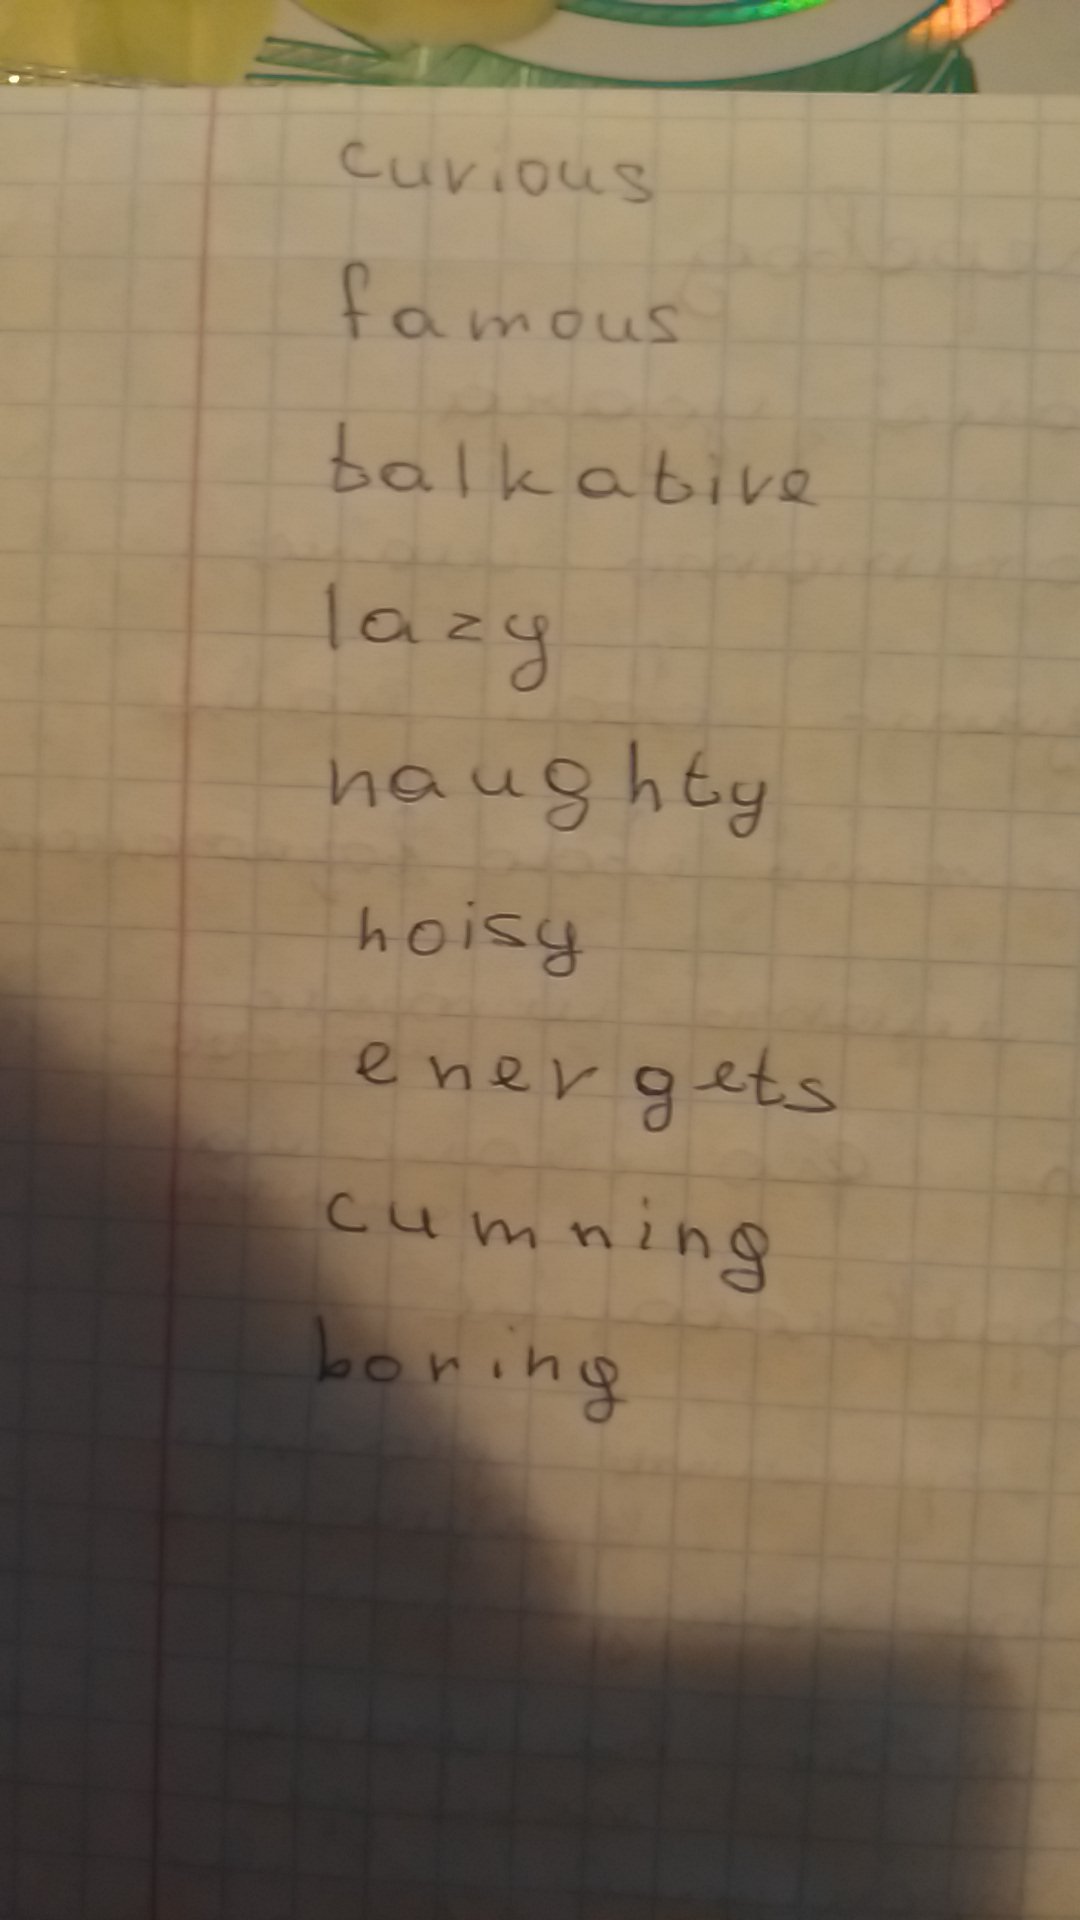 curious
famous
talkative
lazy
naughty
noisy
energets
cumning
boring